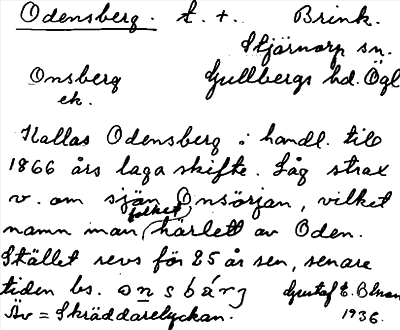 Odensberg. t. +. Brink.
Stjärnorp sn.
Onsberg Gullbergs hd. Ögl
ek.
Kallas Odensberg i handl. till
1866 års laga skifte. Låg strax
v. om sjön Onsörjan, vilket
namn man (folket) härlett av Oden.
Stället revs för 85 år sen, senare
tiden bs. onsbárj Gustaf E. Olsson
Äv = Skräddarelyckan. 1936.